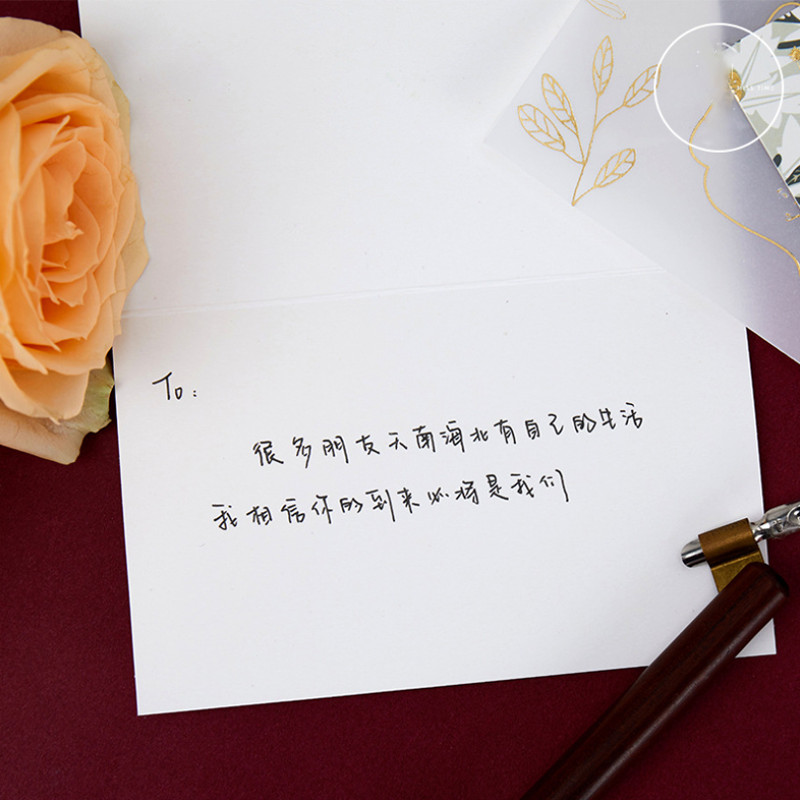 To:
很多朋友天南海北有自己的生活
我相信你的到来必将是我们